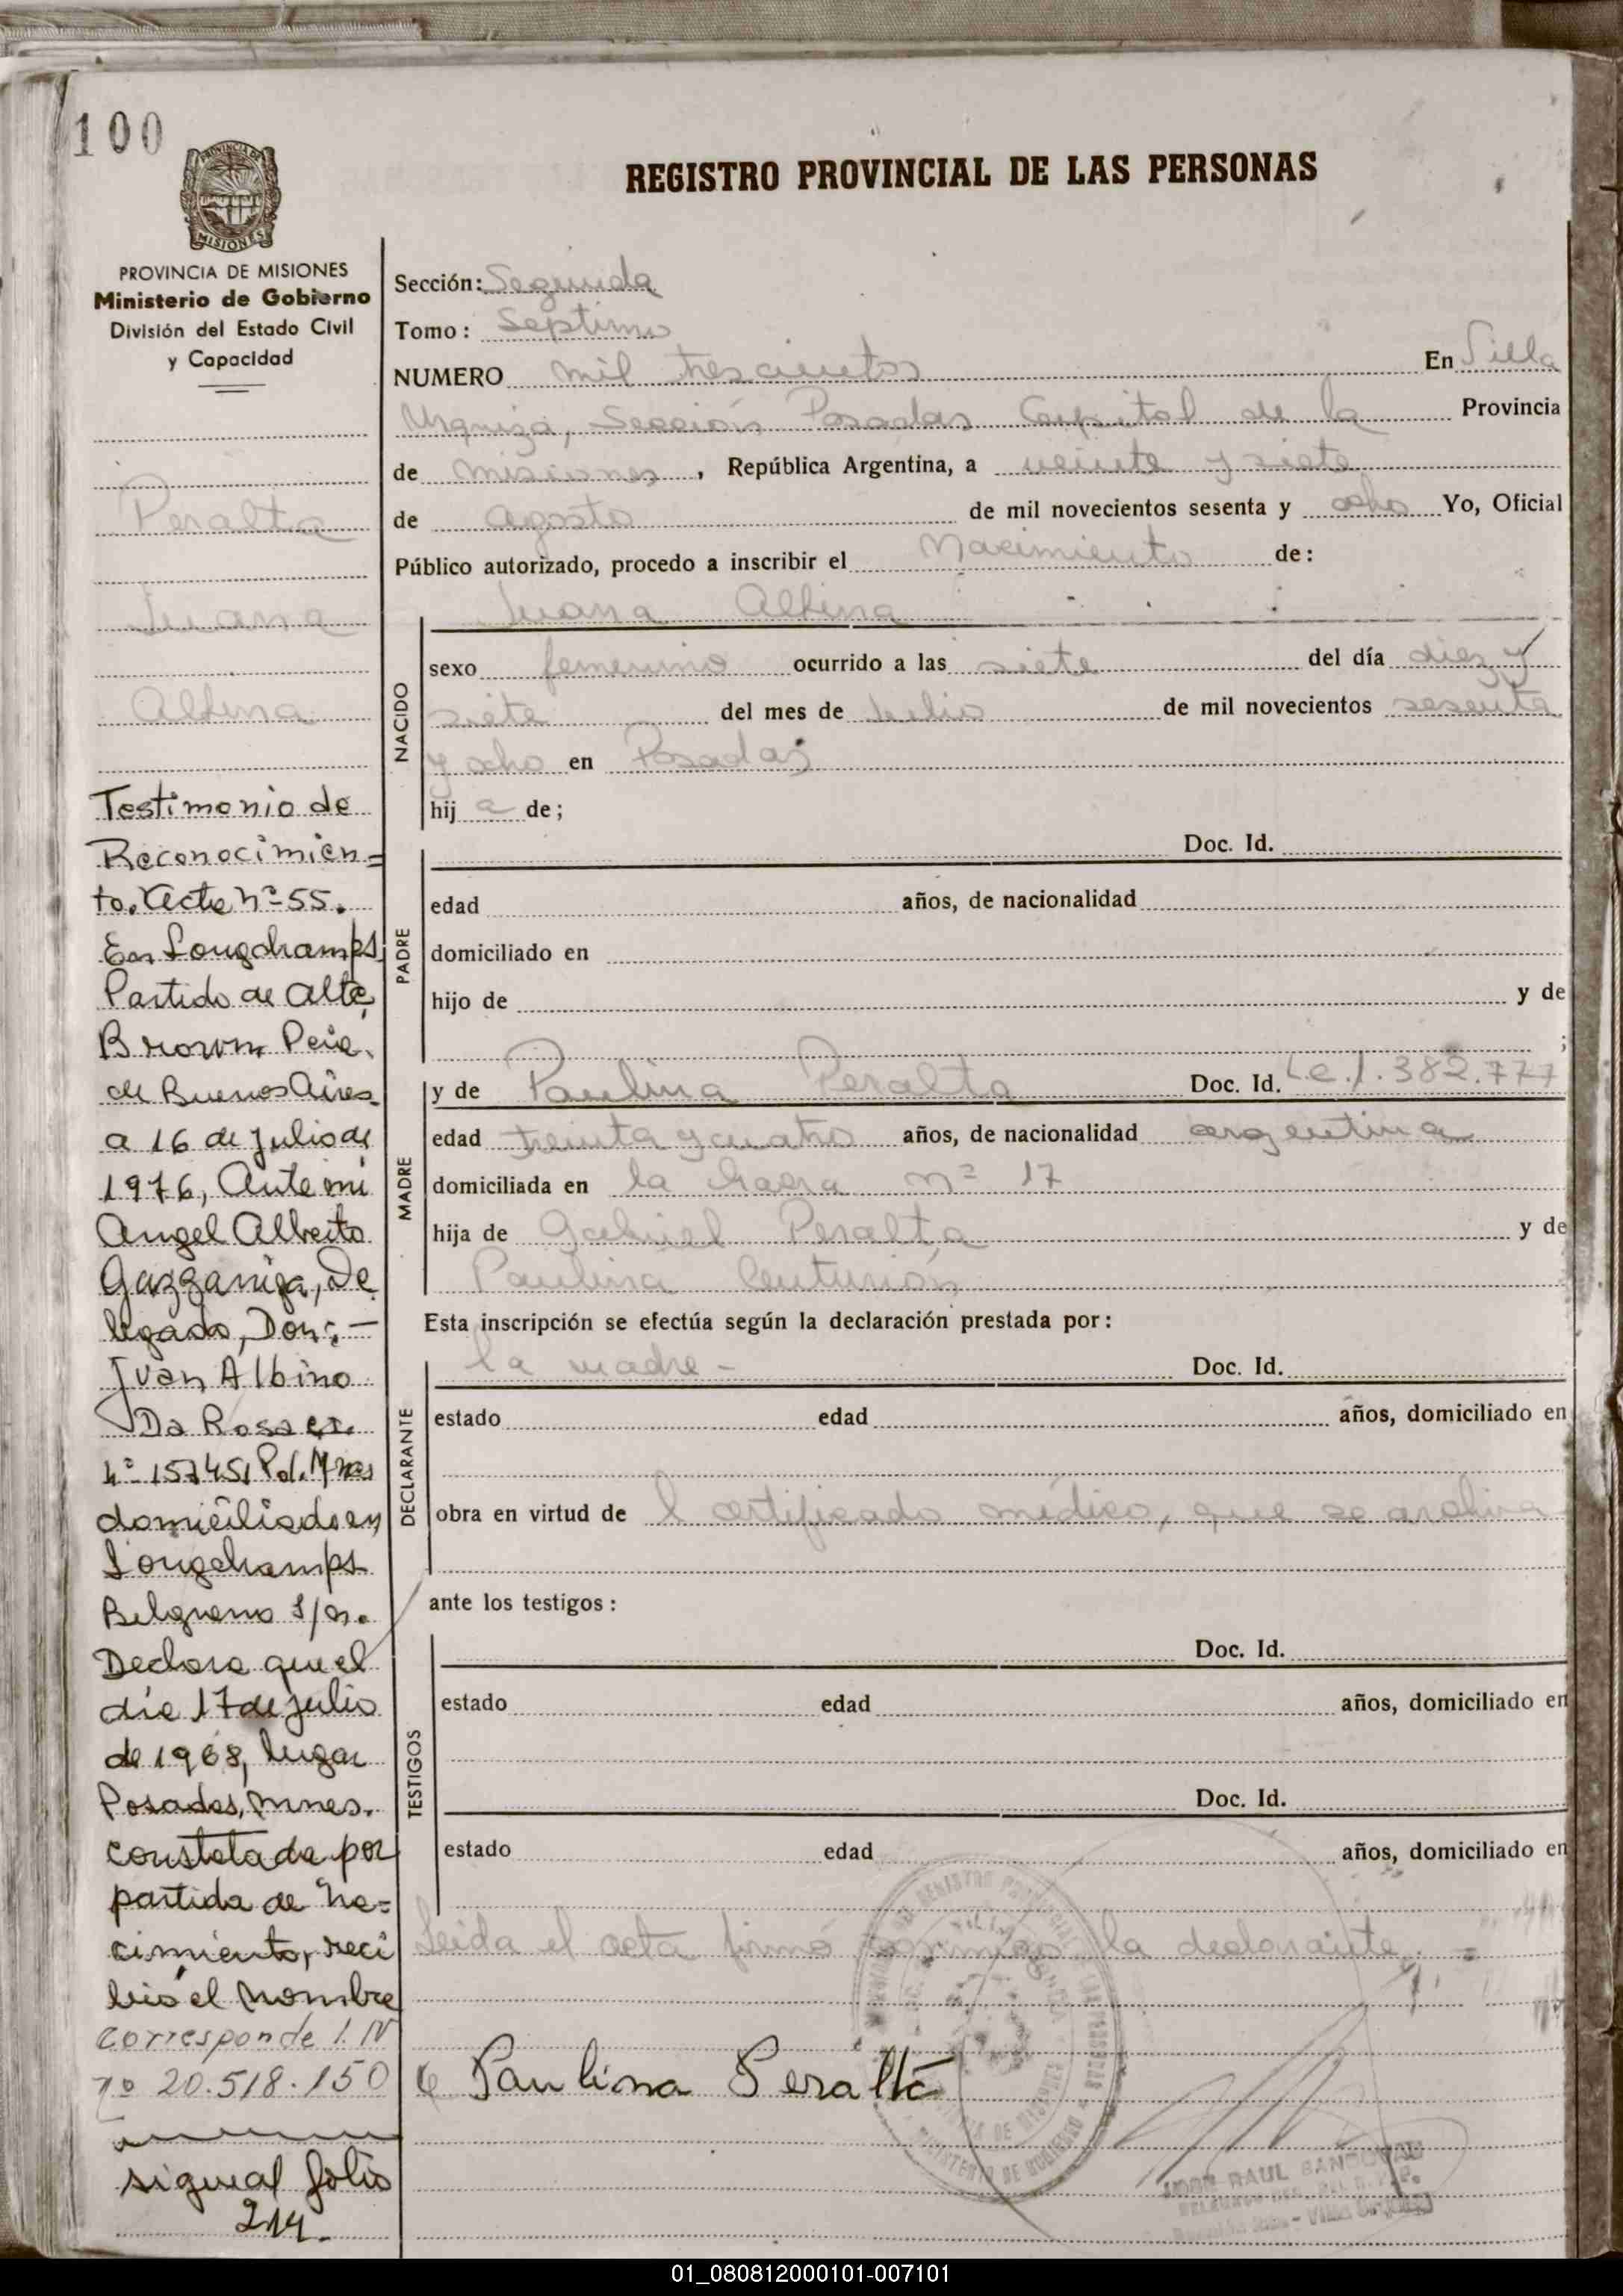 100
REGISTRO PROVINCIAL DE LAS PERSONAS
PROVINCIA DE MISIONES
Ministerio de Gobierno
División del Estado Civil
y Capacidad
Peralta
Juana
Albina
Testimonio de
Reconocimien=
to. Acta nº 55.
En Longchamps
Partido de Alte.
Brown Pcia.
de Buenos Aires
a 16 de Julio de
1976, Ante mi
Angel Alberto
Gazzaniga, De
legado, Don:.—
Juan Albino
Da Rosa CI.
nº 157451 Pol. Mnes
domiciliado en
Longchamps
Belgrano S/n.
Declara que el
día 17 de julio
de 1968, lugar
Posadas, Mnes.
constatada por
partida de na=
cimiento, reci
bió el nombre
corresponde I. N
nº 20.518.150
sigue al folio
214.
Sección: Segunda
Tomo: Septimo
NUMERO mil trescientos En Villa
Urquiza, Sección Posadas Capital de la Provincia
de Misiones, República Argentina, a veinte y siete
de agosto de mil novecientos sesenta y ocho Yo, Oficial
Público autorizado, procedo a inscribir el Nacimiento de:
Juana Albina
NACIDO
sexo femenino ocurrido a las siete del día diez y
siete del mes de Julio de mil novecientos sesenta
y ocho en Posadas
hij a de;
PADRE
Doc. Id.
edad años, de nacionalidad
domiciliado en
hijo de y de
;
MADRE
y de Paulina Peralta Doc. Id. L.C. 1.382.777
edad treinta y cuatro años, de nacionalidad argentina
domiciliada en la chacra nº 17
hija de Gabriel Peralta y de
Paulina Centurión
Esta inscripción se efectúa según la declaración prestada por:
DECLARANTE
la madre - Doc. Id.
estado edad años, domiciliado en
obra en virtud de l certificado médico, que se archiva
ante los testigos:
TESTIGOS
Doc. Id.
estado edad años, domiciliado en
Doc. Id.
estado edad años, domiciliado en
Leida el acta firmó conmigo la declarante. =
Paulina Peralta
MINISTERIO DE GOBIERNO
RAUL SANDOVAL
01_080812000101-007101